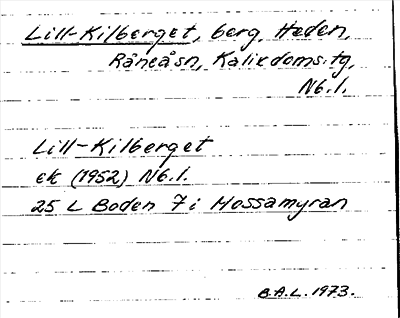 Lill-Kilberget, berg, Heden,
Råneåsn, Kalixdoms.tg,
Nb.l.
Lill-Kilberget
ek (1952) Nb.l.
25 L Boden 7i Mossamyran
B.A.L. 1973.